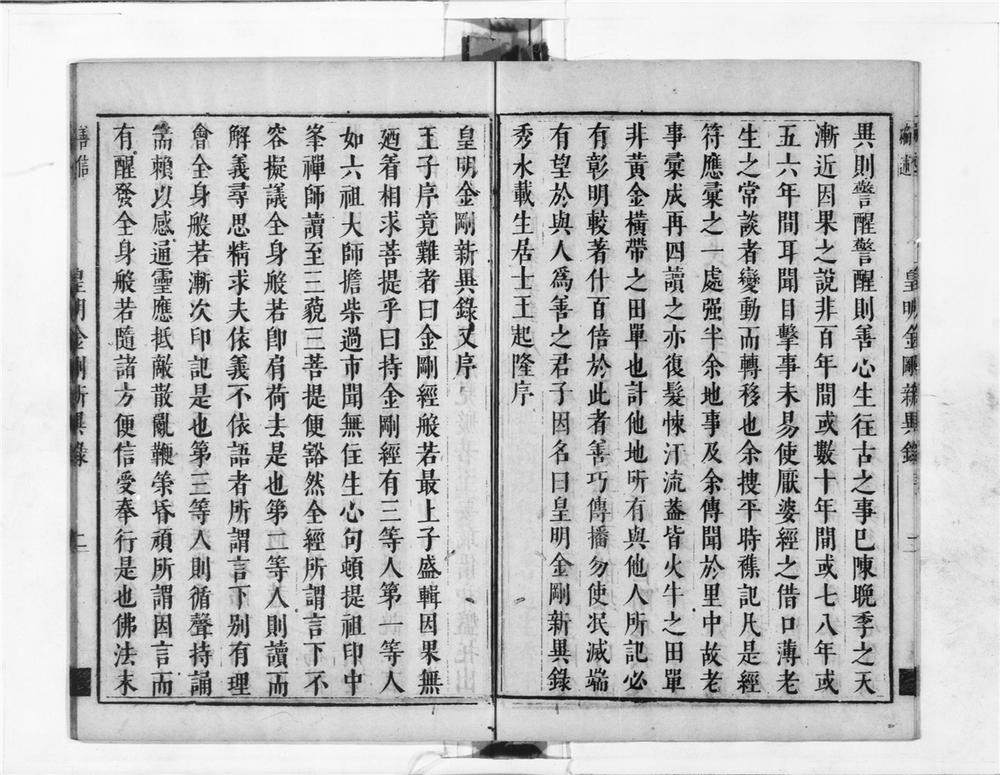 異則警醒警醒則善心生往古之事已陳晩季之天
漸近因果之說非百年間或數十年間或七八年或
五六年間耳聞目擊事未易使厭婆經之借口薄老
生之常談者變動而轉移也余搜平時襍記凡是經
符應彙之一處强半余地事及余傳聞於里中故老
事彙成再四讀之亦復髮悚汗流葢皆火牛之田單
非黃金橫帶之田單也計他地所有與他人所記必
有彰明較著什百倍於此者善巧傳播勿使泯滅端
有望於與人爲善之君子因名曰皇明金剛新異錄
秀水載生居士王起隆序
皇明金剛新異錄
二
皇明金剛新異錄又序
王子序竟難者曰金剛經般若最上子盛輯因果無
廼着相求菩提乎曰持金剛經有三等人第一等人
如六祖大師擔柴過市聞無住生心句頓提祖印中
峯禪師讀至三藐三菩提便豁然全經所謂言下不
容擬議全身般若卽肩荷去是也第二等人則讀而
解義尋思精求夫依義不依語者所謂言下别有理
會全身般若漸次印記是也第三等人則循聲持誦
耑賴以感通靈應抵敵散亂鞭策昏頑所謂因言而
有醒發全身般若隨諸方便信受奉行是也佛法末
皇明金剛新異錄
二